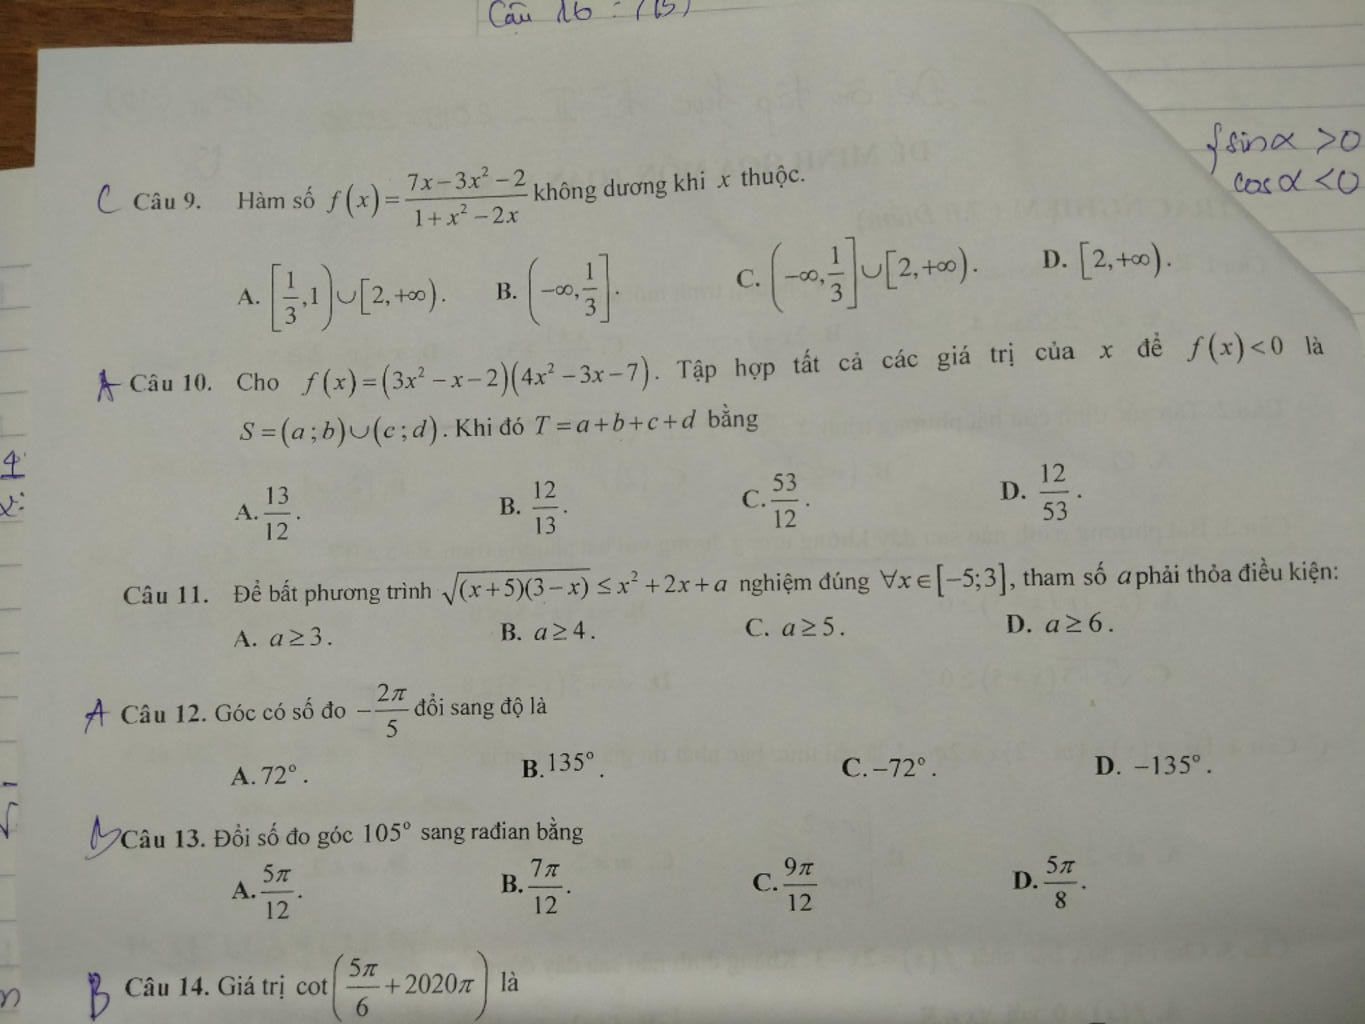 Câu 16 : (B)
{sinα > 0
cosα < 0
C Câu 9. Hàm số f(x) = (7x − 3x² − 2)/(1 + x² − 2x) không dương khi x thuộc.
A. [1/3, 1) ∪ [2, +∞). B. (−∞, 1/3]. C. (−∞, 1/3] ∪ [2, +∞). D. [2, +∞).
A Câu 10. Cho f(x) = (3x² − x − 2)(4x² − 3x − 7). Tập hợp tất cả các giá trị của x để f(x) < 0 là
S = (a ; b) ∪ (c ; d). Khi đó T = a + b + c + d bằng
A. 13/12. B. 12/13. C. 53/12. D. 12/53.
Câu 11. Để bất phương trình √((x + 5)(3 − x)) ≤ x² + 2x + a nghiệm đúng ∀x ∈ [−5; 3], tham số a phải thỏa điều kiện:
A. a ≥ 3. B. a ≥ 4. C. a ≥ 5. D. a ≥ 6.
A Câu 12. Góc có số đo −2π/5 đổi sang độ là
A. 72°. B. 135°. C. −72°. D. −135°.
B Câu 13. Đổi số đo góc 105° sang rađian bằng
A. 5π/12. B. 7π/12. C. 9π/12 D. 5π/8.
B Câu 14. Giá trị cot(5π/6 + 2020π) là